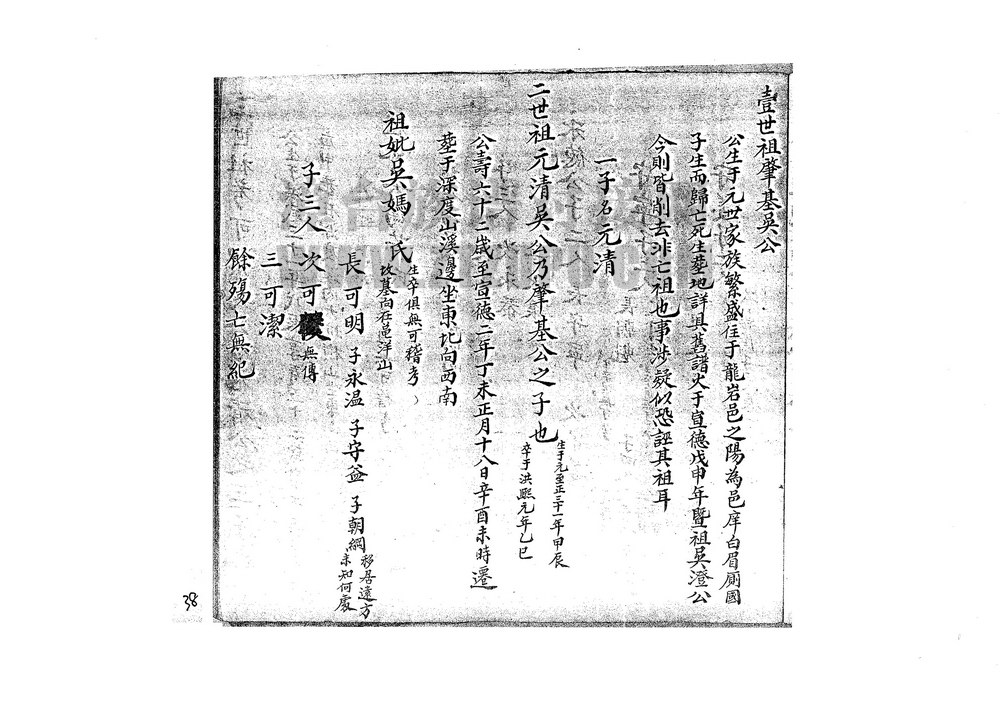 壹世祖肇基吳公
公生于元世家族繁盛住于龍岩邑之陽為邑庠白眉廁國
子生而歸亡死生塟地詳具舊譜火于宣德戊申年暨祖吳澄公
今則皆削去非亡祖也事涉疑似恐誣其祖耳
一子名元清
二世祖元清吳公乃肇基公之子也
生于元至正二十一年甲辰
卒于洪熙元年乙巳
公壽六十二歲至宣德二年丁未正月十八日辛酉未時遷
塟于深度山溪邊坐東北向西南
祖妣吳媽氏
生卒俱無可稽考
坟墓向在蓝洋山
子三人
長可明 子永温 子守益 子朝綱
移居遠方
未知何處
次可 無傳
三可潔
餘殤亡無紀
38